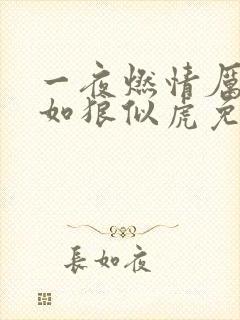 一夜燃情厲
如狼似虎免
長如夜